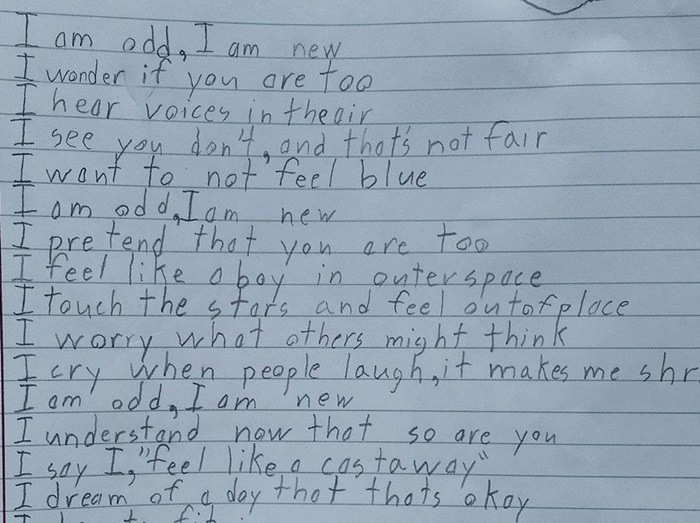 I am odd, I am new
I wonder if you are too
I hear voices in the air
I see you don't, and that's not fair
I want to not feel blue
I am odd, I am new
I pretend that you are too
I feel like a boy in outerspace
I touch the stars and feel out of place
I worry what others might think
I cry when people laugh, it makes me shr
I am odd, I am new
I understand now that so are you
I say I, "feel like a castaway"
I dream of a day that thats okay